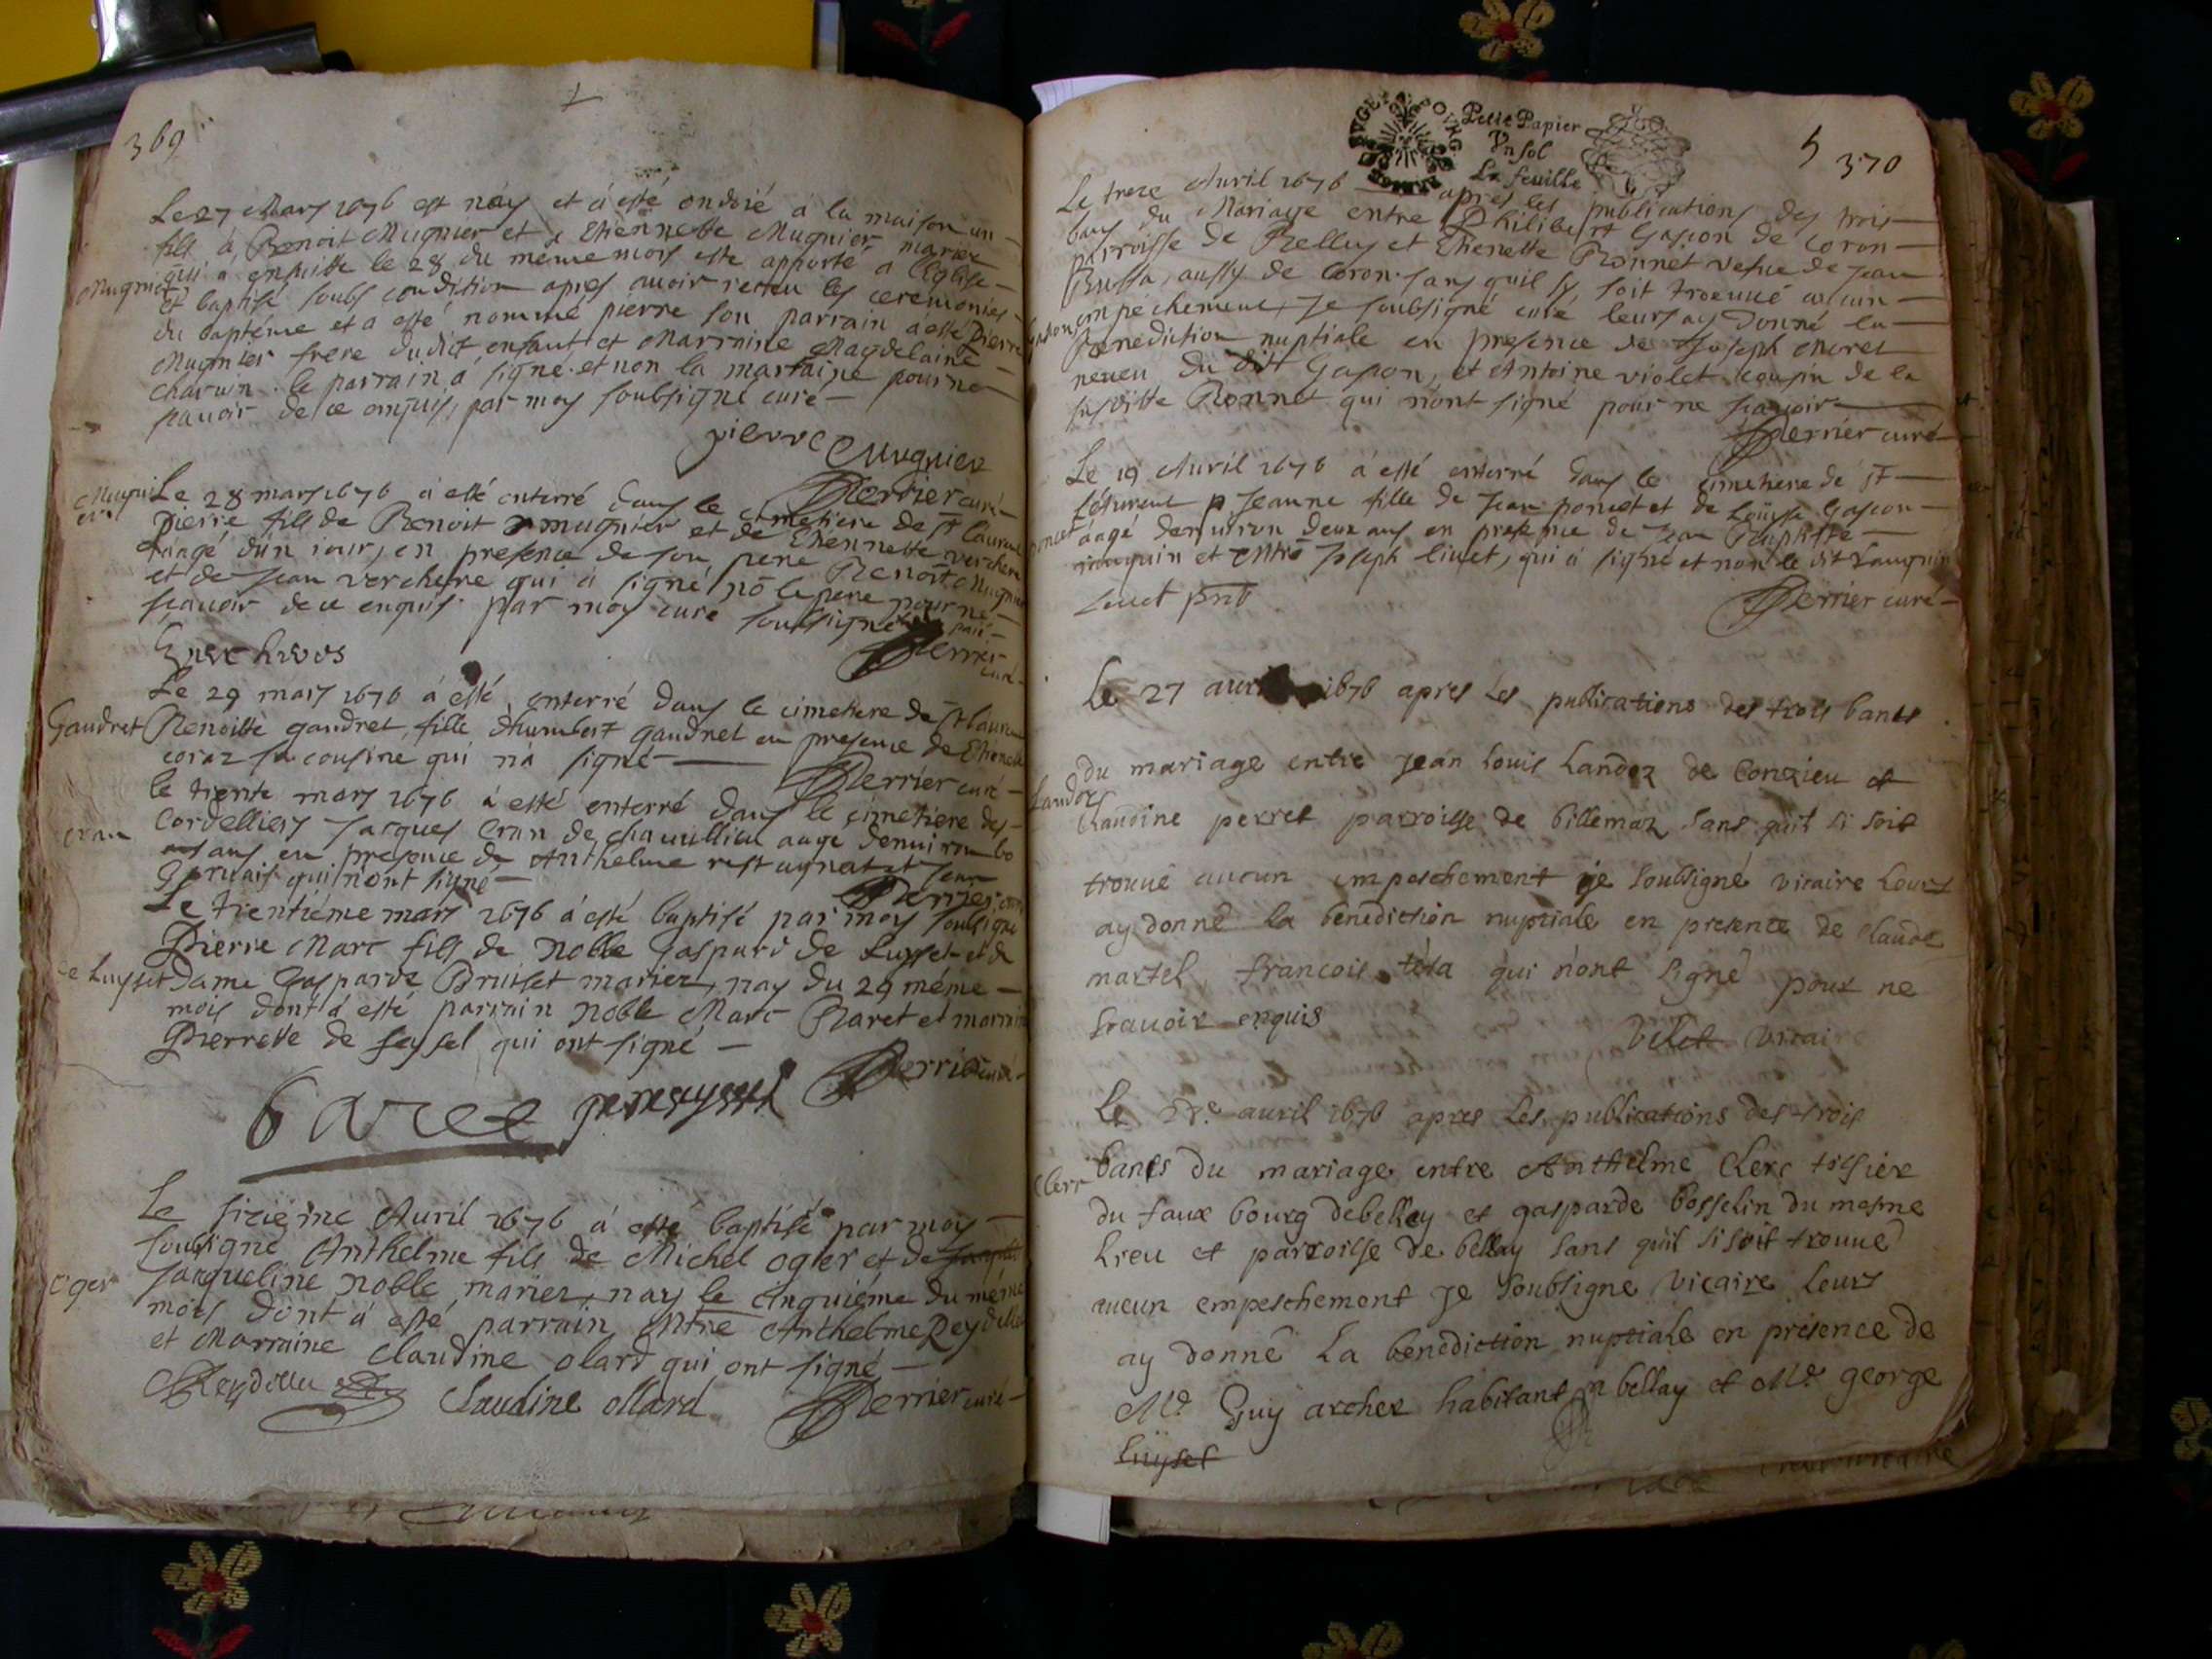 369
Le 27 Mars 1676 est náy et á esté ondoié a la maison un
fils á Benoit Mugnier et Ethiennette Mugnier mariez
qui a ensuitte le 28 du méme mois esté apporté a l'Eglise
Mugnier
et baptisé soubs condition apres auoir receu les ceremonies
du baptéme et a esté nommé pierre son parrain á esté Pierre
Mugnier frere dudict enfant et Marraine Magdelaine
charuin. le parrain á signé et non la marraine pour ne
scauoir de ce enquis, par moy soubsigné curé
pierre Mugnier
Perrier curé
Mugnier
Le 28 mars 1676 á esté enterré dans le cimetiere de St Laurent
Pierre fils de Benoit mugnier et de Ethennette verchere
aagé d'un iour, en presence de son pere Benoit Mugnier
et de Jean verchere qui á signé nō le pere pour ne
scauoir de ce enquis par moy curé soubsigné
Perrier curé
Le 29 mars 1676 á esté enterré dans le cimetiere de St Laurent
Gaudret
Benoitte gaudret, fille d'humbert gaudret en presence de Ethennette
coraz sa cousine qui n'á signé
Perrier curé
le trente mars 1676 á esté enterré dans le cimetiere des
Cran
Cordelliers Jacques Cran de chauuillieu aagé denuiron 60
ans en presence de Anthelme restaynat et Jean
Geruais qui n'ont signé
Perrier curé
Le trentiéme mars 1676 á esté baptisé par moy soubsigné
Pierre Marc fils de Noble Gaspard de Luyset et de
de Luyset
Dame Gasparde Bruiset mariez, nay du 29 méme
mois dont á esté parrain Noble Marc Baret et marraine
Pierrette de seyssel qui ont signé
Perrier curé
Baret
Le sizieme Auril 1676 á esté baptisé par moy
soubsigné Anthelme fils de Michel ogier et de
oger
Jacqueline Noble mariez, nay le cinquiéme du méme
mois dont á esté parrain Mtre Anthelme Reydellet
et Marraine Claudine olard qui ont signé
Reydellet
Claudine ollard
Perrier curé
PETIT Papier
Vn sol
La feuille
5
370
Le treze Auril 1676 apres les publications des trois
bans du Mariage entre Philibert Gascon de Coron
parroisse de Belley et Ethenette Bonnet vefue de Jean
Buffa, aussy de Coron. sans quil s'y soit trouué aucun
Gascon
empéchement, Je soubsigné curé leurs ay donné la
Benediction nuptiale en presence de Joseph Moret
neueu du dit Gascon, et Antoine violet cousin de la
susditte Bonnet qui n'ont signé pour ne scauoir
Perrier curé
Le 19 Auril 1676 á esté enterré dans le cimetiere de St
Laurent Jeanne fille de Jean poncet et de Loüise Gascon
poncet
áagé denuiron deux ans en presence de Jean Baptiste
iauquin et Mtre Joseph liuet, qui á signé et non le dit Iauquin
Liuet pnt
Perrier curé
Le 27 auril 1676 apres Les publications des trois bancs
du mariage entre Jean Louis Landoz de Conzieu et
Landoz
Claudine perret parroisse de billemaz sans quil si soit
trouué aucun empeschement je soubsigné vicaire Leurs
ay donné la benediction nuptiale en presence de claude
martel, francois téta qui n'ont signé pour ne
scauoir enquis
Vicaire
Le auril 1676 apres Les publications des trois
Clerc
bancs du mariage entre Anthelme Clerc tissier
du faux bourg debelley et gasparde bosselin du mesme
Lieu et parroisse de bellay sans quil si soit trouué
aucun empeschement Je soubsigne vicaire Leurs
ay donné La benediction nuptiale en présence de
Mr Guy archer habitant a bellay et Mr george
Luyset